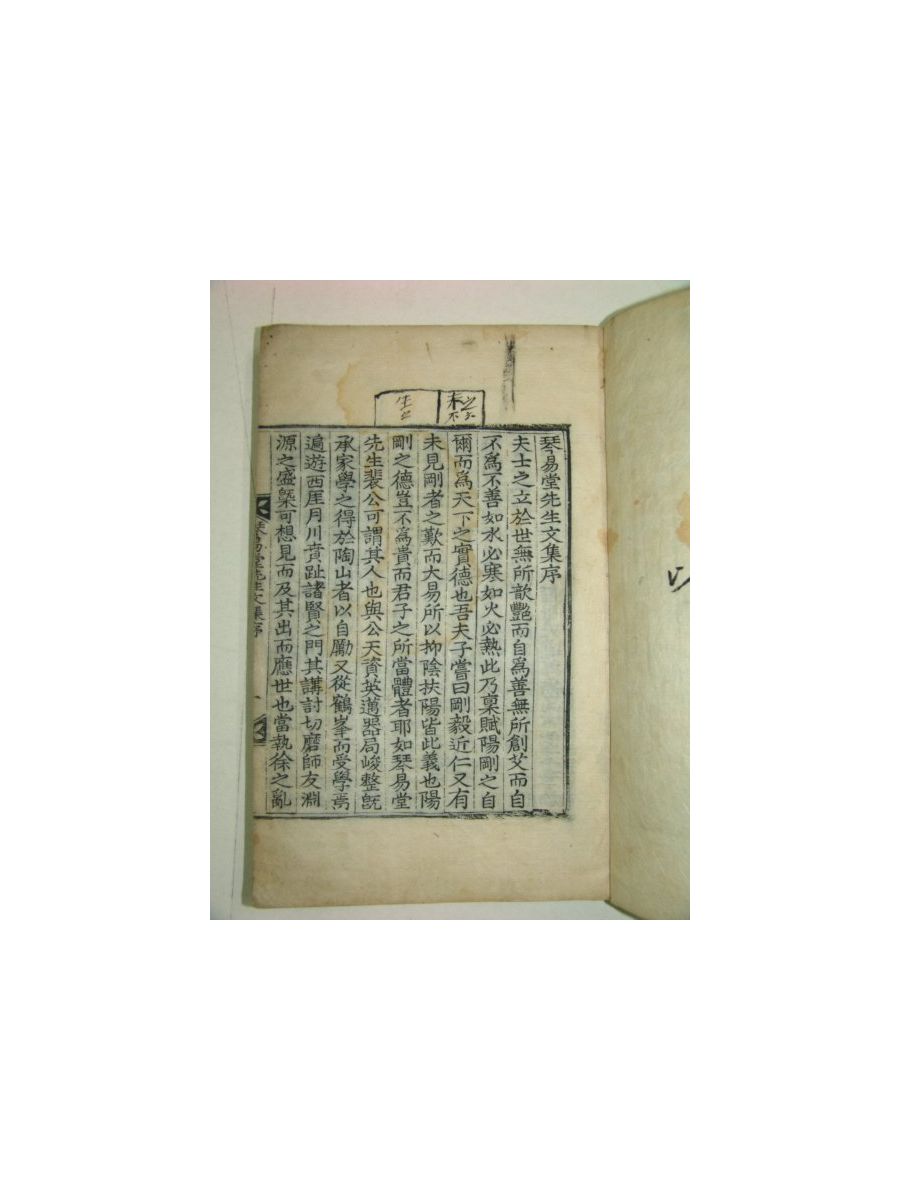 琴易堂先生文集序
夫士之立於世無所歆艶而自為善無所創艾而自
不為不善如水必寒如火必熱此乃稟賦陽剛之自
爾而為天下之實德也吾夫子嘗曰剛毅近仁又有
未見剛者之歎而大易所以抑陰扶陽皆此義也陽
剛之德豈不為貴而君子之所當體者耶如琴易堂
先生裴公可謂其人也與公天資英邁器局峻整旣
承家學之得於陶山者以自勵又從鶴峯而受學焉
遍遊西厓月川賁趾諸賢之門其講討切磨師友淵
源之盛槩可想見而及其出而應世也當執徐之亂
琴易堂先生文集序
一